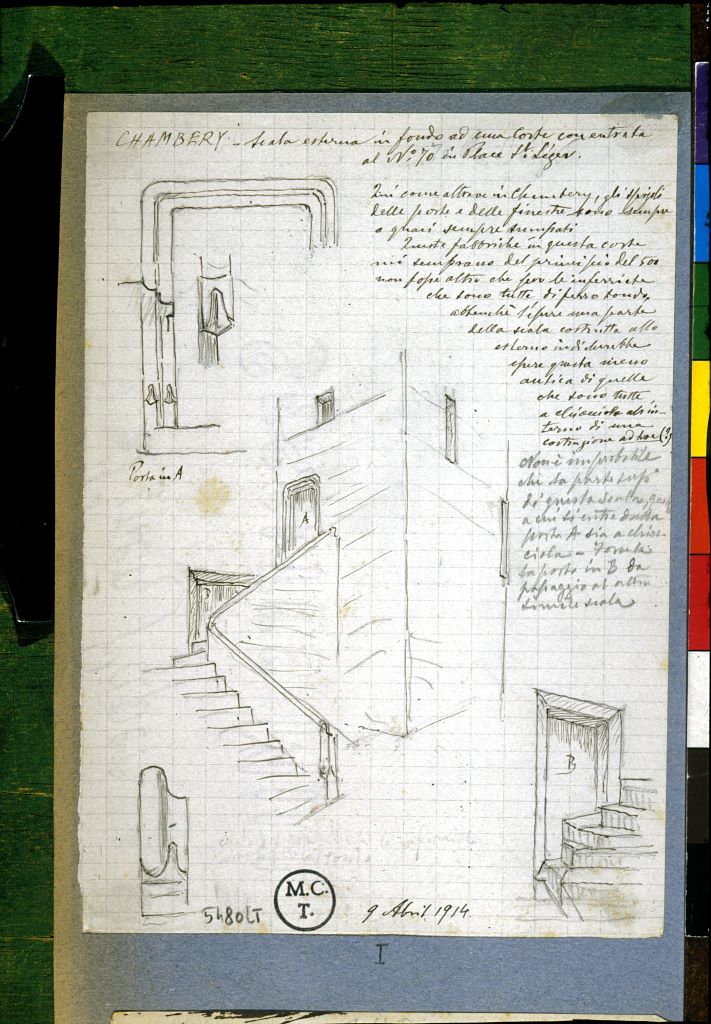 CHAMBERY - Scala esterna in fondo ad una corte con entrata
al N.° 70 in Place St. Léger.
Qui come altrove in Chambery, gli spigoli
delle porte e delle finestre sono sempre
o quasi sempre smussati
Queste fabbriche in questa corte
mi sembrano del principio del 500
non fosse altro che per le inferriate
che sono tutte di ferro tondo,
abbenché l'essere una parte
della scala costrutta allo
esterno indicherebbe
essere questa meno
antica di quelle
che sono tutte
a chiocciola all'in-
terno di una
costruzione ad hoc (?)
Non è improbabile
che la parte sup.
di questa scala,
a cui si entra dalla
porta A sia a chioc-
ciola -
la porta in B da
passaggio al altra
simile scala
Porta in A
A
B
5480LT
M.C.
T.
9 Abril 1914
I